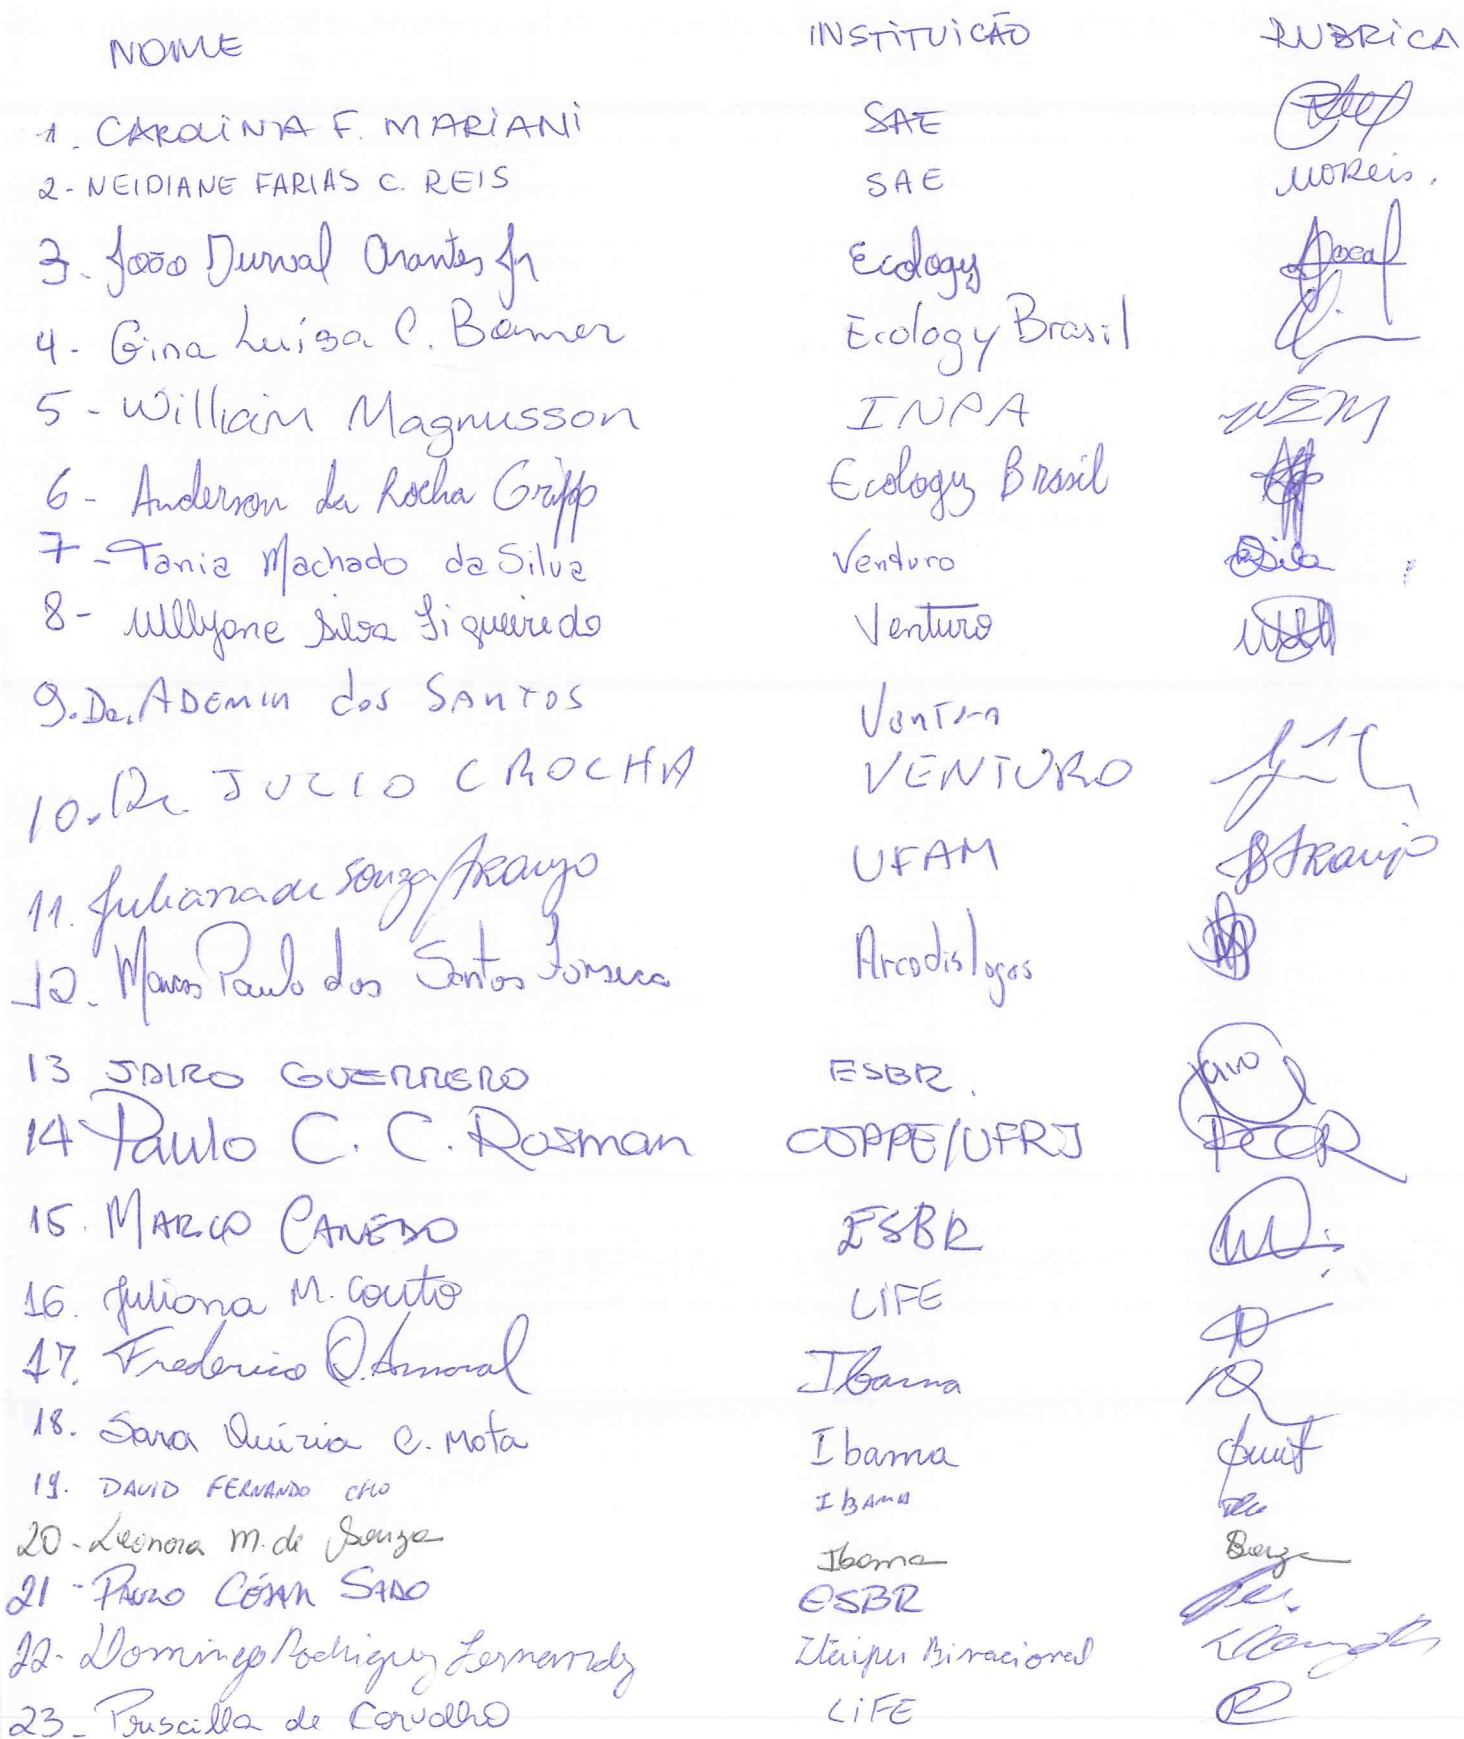 NOME INSTITUIÇÃO RUBRICA
1. CAROLINA F. MARIANI SAE
2- NEIDIANE FARIAS C. REIS SAE NOReis.
3- João Durval Arantes Jr Ecology
4- Gina Luísa C. Boemer Ecology Brasil
5- William Magnusson INPA WEM
6- Anderson da Rocha Gripp Ecology Brasil
7- Tania Machado da Silva Venturo Silva
8- Willyane Silva Figueiredo Venturo
9. Dr. ADEMIR dos SANTOS
10. Dr JULIO C ROCHA VENTURO
11. Juliana de Souza Araujo UFAM JSAraujo
12. Marcos Paulo dos Santos Fonseca
13 JAIRO GUERRERO ESBR. Jairo
14 Paulo C. C. Rosman COPPE/UFRJ PCCR
15. MARCO CANEDO ESBR
16. Juliana M. Couto LIFE
17. Frederico Q. Amaral Ibama
18. Sara Quízia C. Mota Ibama
19. DAVID FERNANDO CHO IBAMA
20- Leonora M. de Souza Ibama Souza
21- PAULO CÉSAR SADO ESBR
22- Domingo Rodriguez Fernandez Itaipu Binacional
23- Priscilla de Carvalho LIFE